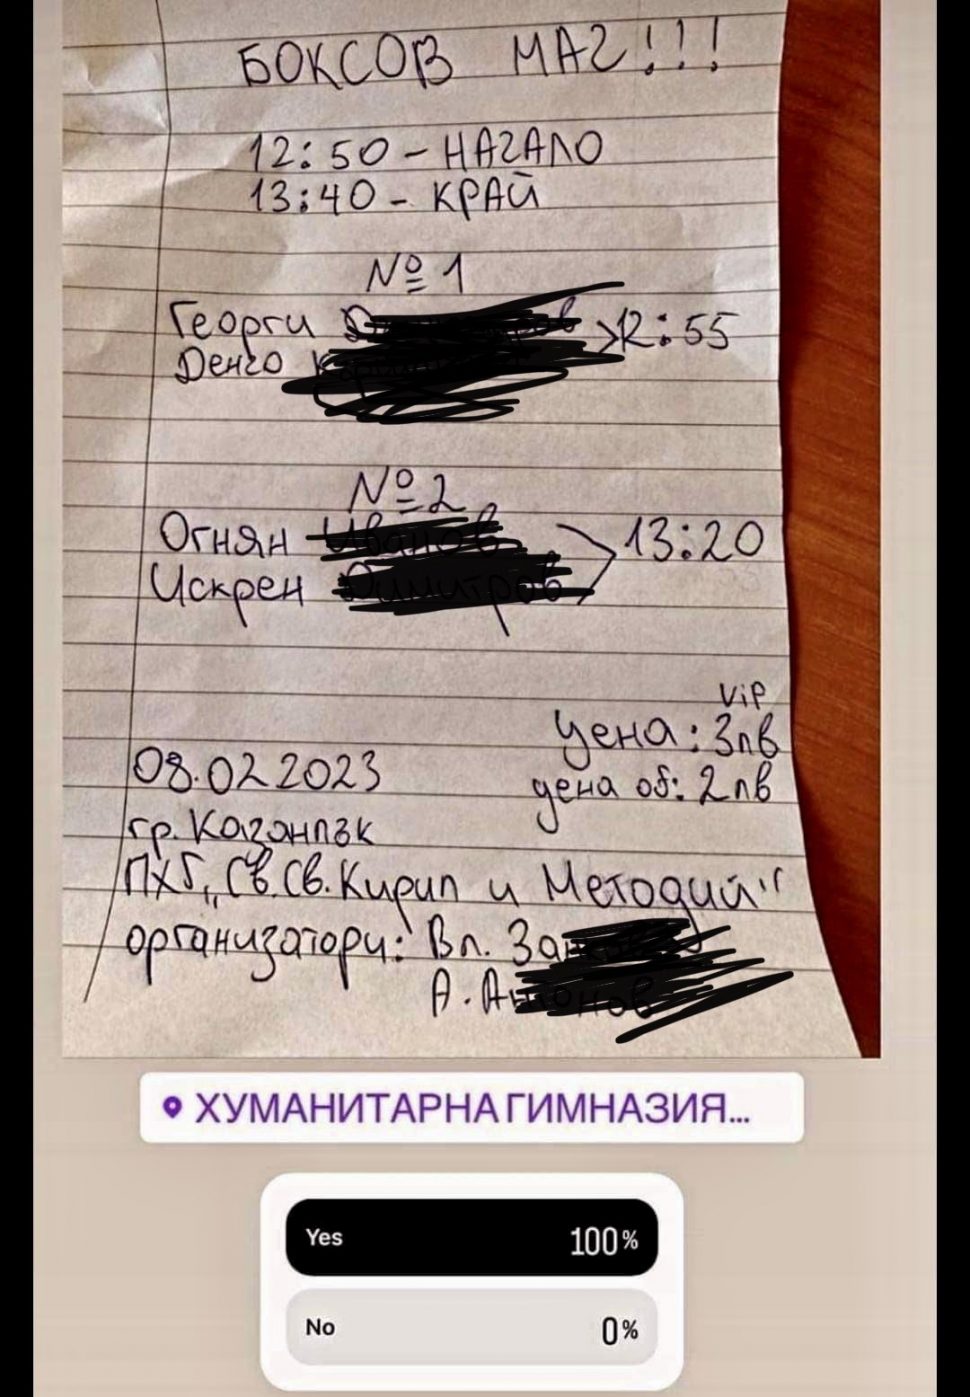 БОКСОВ МАЧ!!!
12:50 - НАЧАЛО
13:40 - КРАЙ
№ 1
Георги
Денчо
12:55
№ 2
Огнян
Искрен
13:20
vip
цена: 3лв
цена об: 2лв
08.02 2023
гр. Казанлък
ПХГ „Св. Св. Кирил и Методий"
организатори: Вл.
А.
ХУМАНИТАРНА ГИМНАЗИЯ...
Yes 100%
No 0%